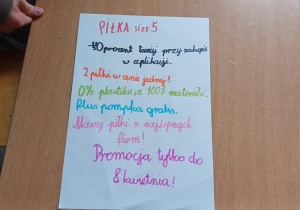 PIŁKA size 5
-40 procent taniej przy zakupie
w aplikacji.
2 piłki w cenie jednej!
0% plastiku, a 100% materiału.
Plus pompka gratis.
Mamy piłki z najlepszych
firm!
Promocja tylko do
8 kwietnia!